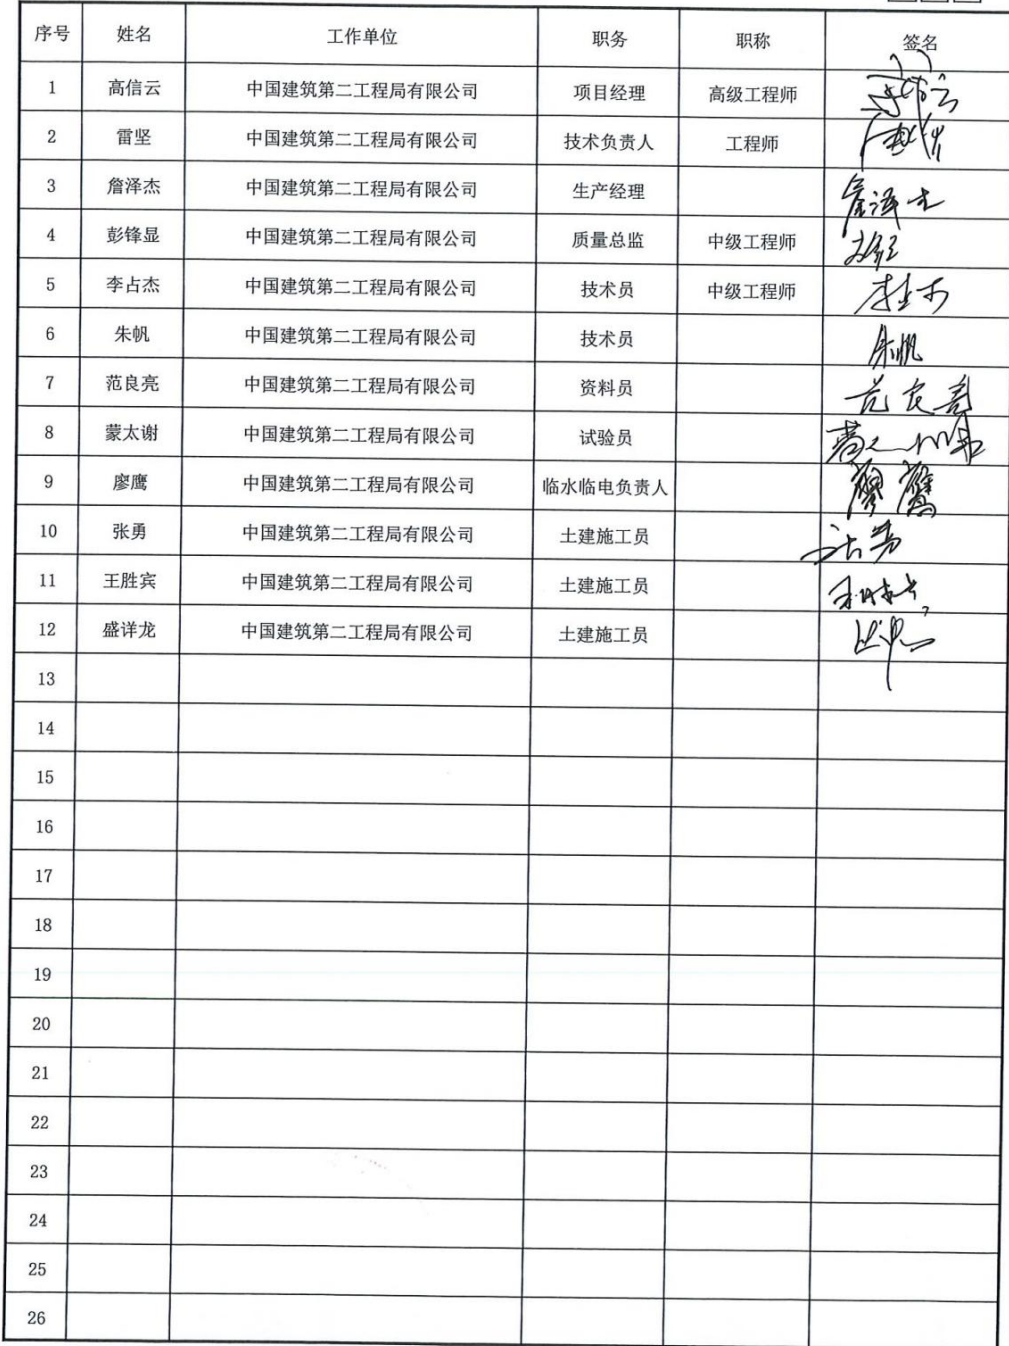 序号 姓名 工作单位 职务 职称 签名
1 高信云 中国建筑第二工程局有限公司 项目经理 高级工程师 高信云
2 雷坚 中国建筑第二工程局有限公司 技术负责人 工程师
3 詹泽杰 中国建筑第二工程局有限公司 生产经理 詹泽杰
4 彭锋显 中国建筑第二工程局有限公司 质量总监 中级工程师
5 李占杰 中国建筑第二工程局有限公司 技术员 中级工程师 李占杰
6 朱帆 中国建筑第二工程局有限公司 技术员 朱帆
7 范良亮 中国建筑第二工程局有限公司 资料员 范良亮
8 蒙太谢 中国建筑第二工程局有限公司 试验员
9 廖鹰 中国建筑第二工程局有限公司 临水临电负责人 廖鹰
10 张勇 中国建筑第二工程局有限公司 土建施工员 张勇
11 王胜宾 中国建筑第二工程局有限公司 土建施工员
12 盛详龙 中国建筑第二工程局有限公司 土建施工员
13
14
15
16
17
18
19
20
21
22
23
24
25
26